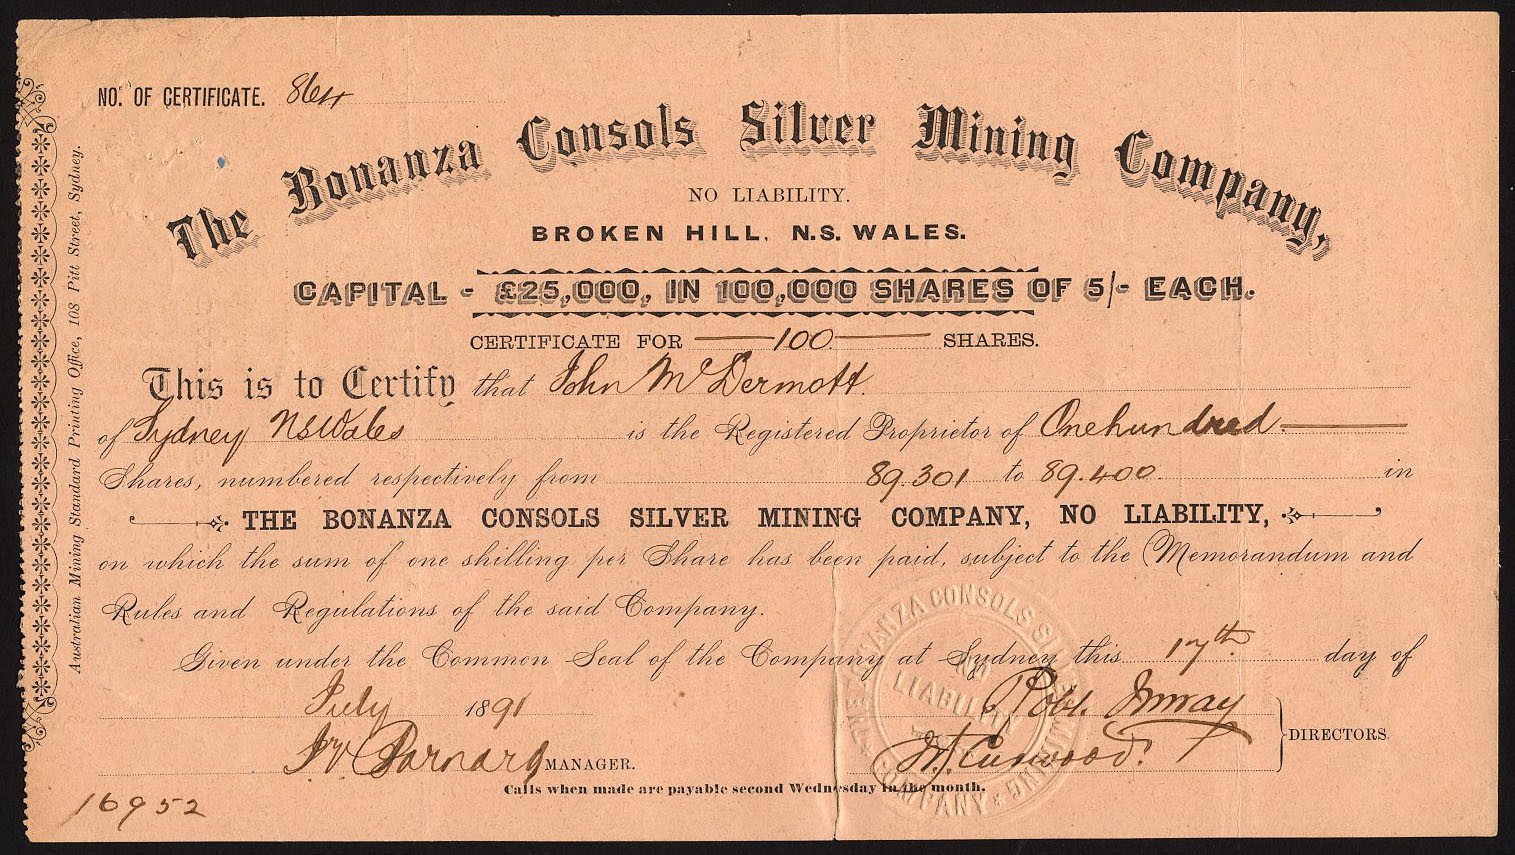 NO. OF CERTIFICATE. 864
The Bonanza Consols Silver Mining Company,
NO LIABILITY.
BROKEN HILL, N.S. WALES.
CAPITAL - £25,000, IN 100,000 SHARES OF 5/- EACH.
CERTIFICATE FOR 100 SHARES.
This is to Certify that John McDermott
of Sydney NSWales is the Registered Proprietor of One hundred
Shares, numbered respectively from 89.301 to 89.400 in
THE BONANZA CONSOLS SILVER MINING COMPANY, NO LIABILITY,
on which the sum of one shilling per Share has been paid, subject to the Memorandum and
Rules and Regulations of the said Company.
Given under the Common Seal of the Company at Sydney this 17th day of
July 1891
Robt. Imray
Barnard MANAGER.
Curwood DIRECTORS.
Calls when made are payable second Wednesday in the month.
16952
Australian Mining Standard Printing Office, 108 Pitt Street, Sydney.
THE BONANZA CONSOLS SILVER MINING COMPANY
NO
LIABILITY